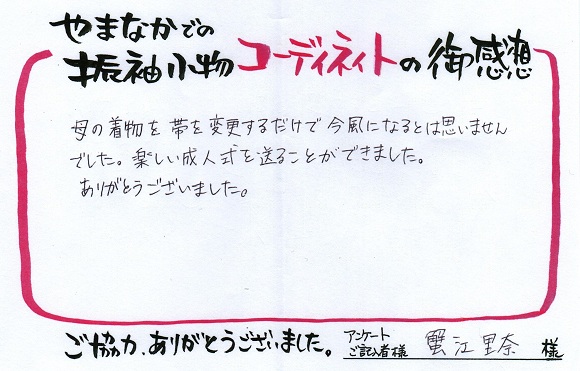 やまなかでの
振袖小物コーディネイトの御感想
母の着物を帯を変更するだけで今風になるとは思いません
でした。楽しい成人式を送ることができました。
ありがとうございました。
ご協力、ありがとうございました。アンケートご記入者様 蟹江里奈 様